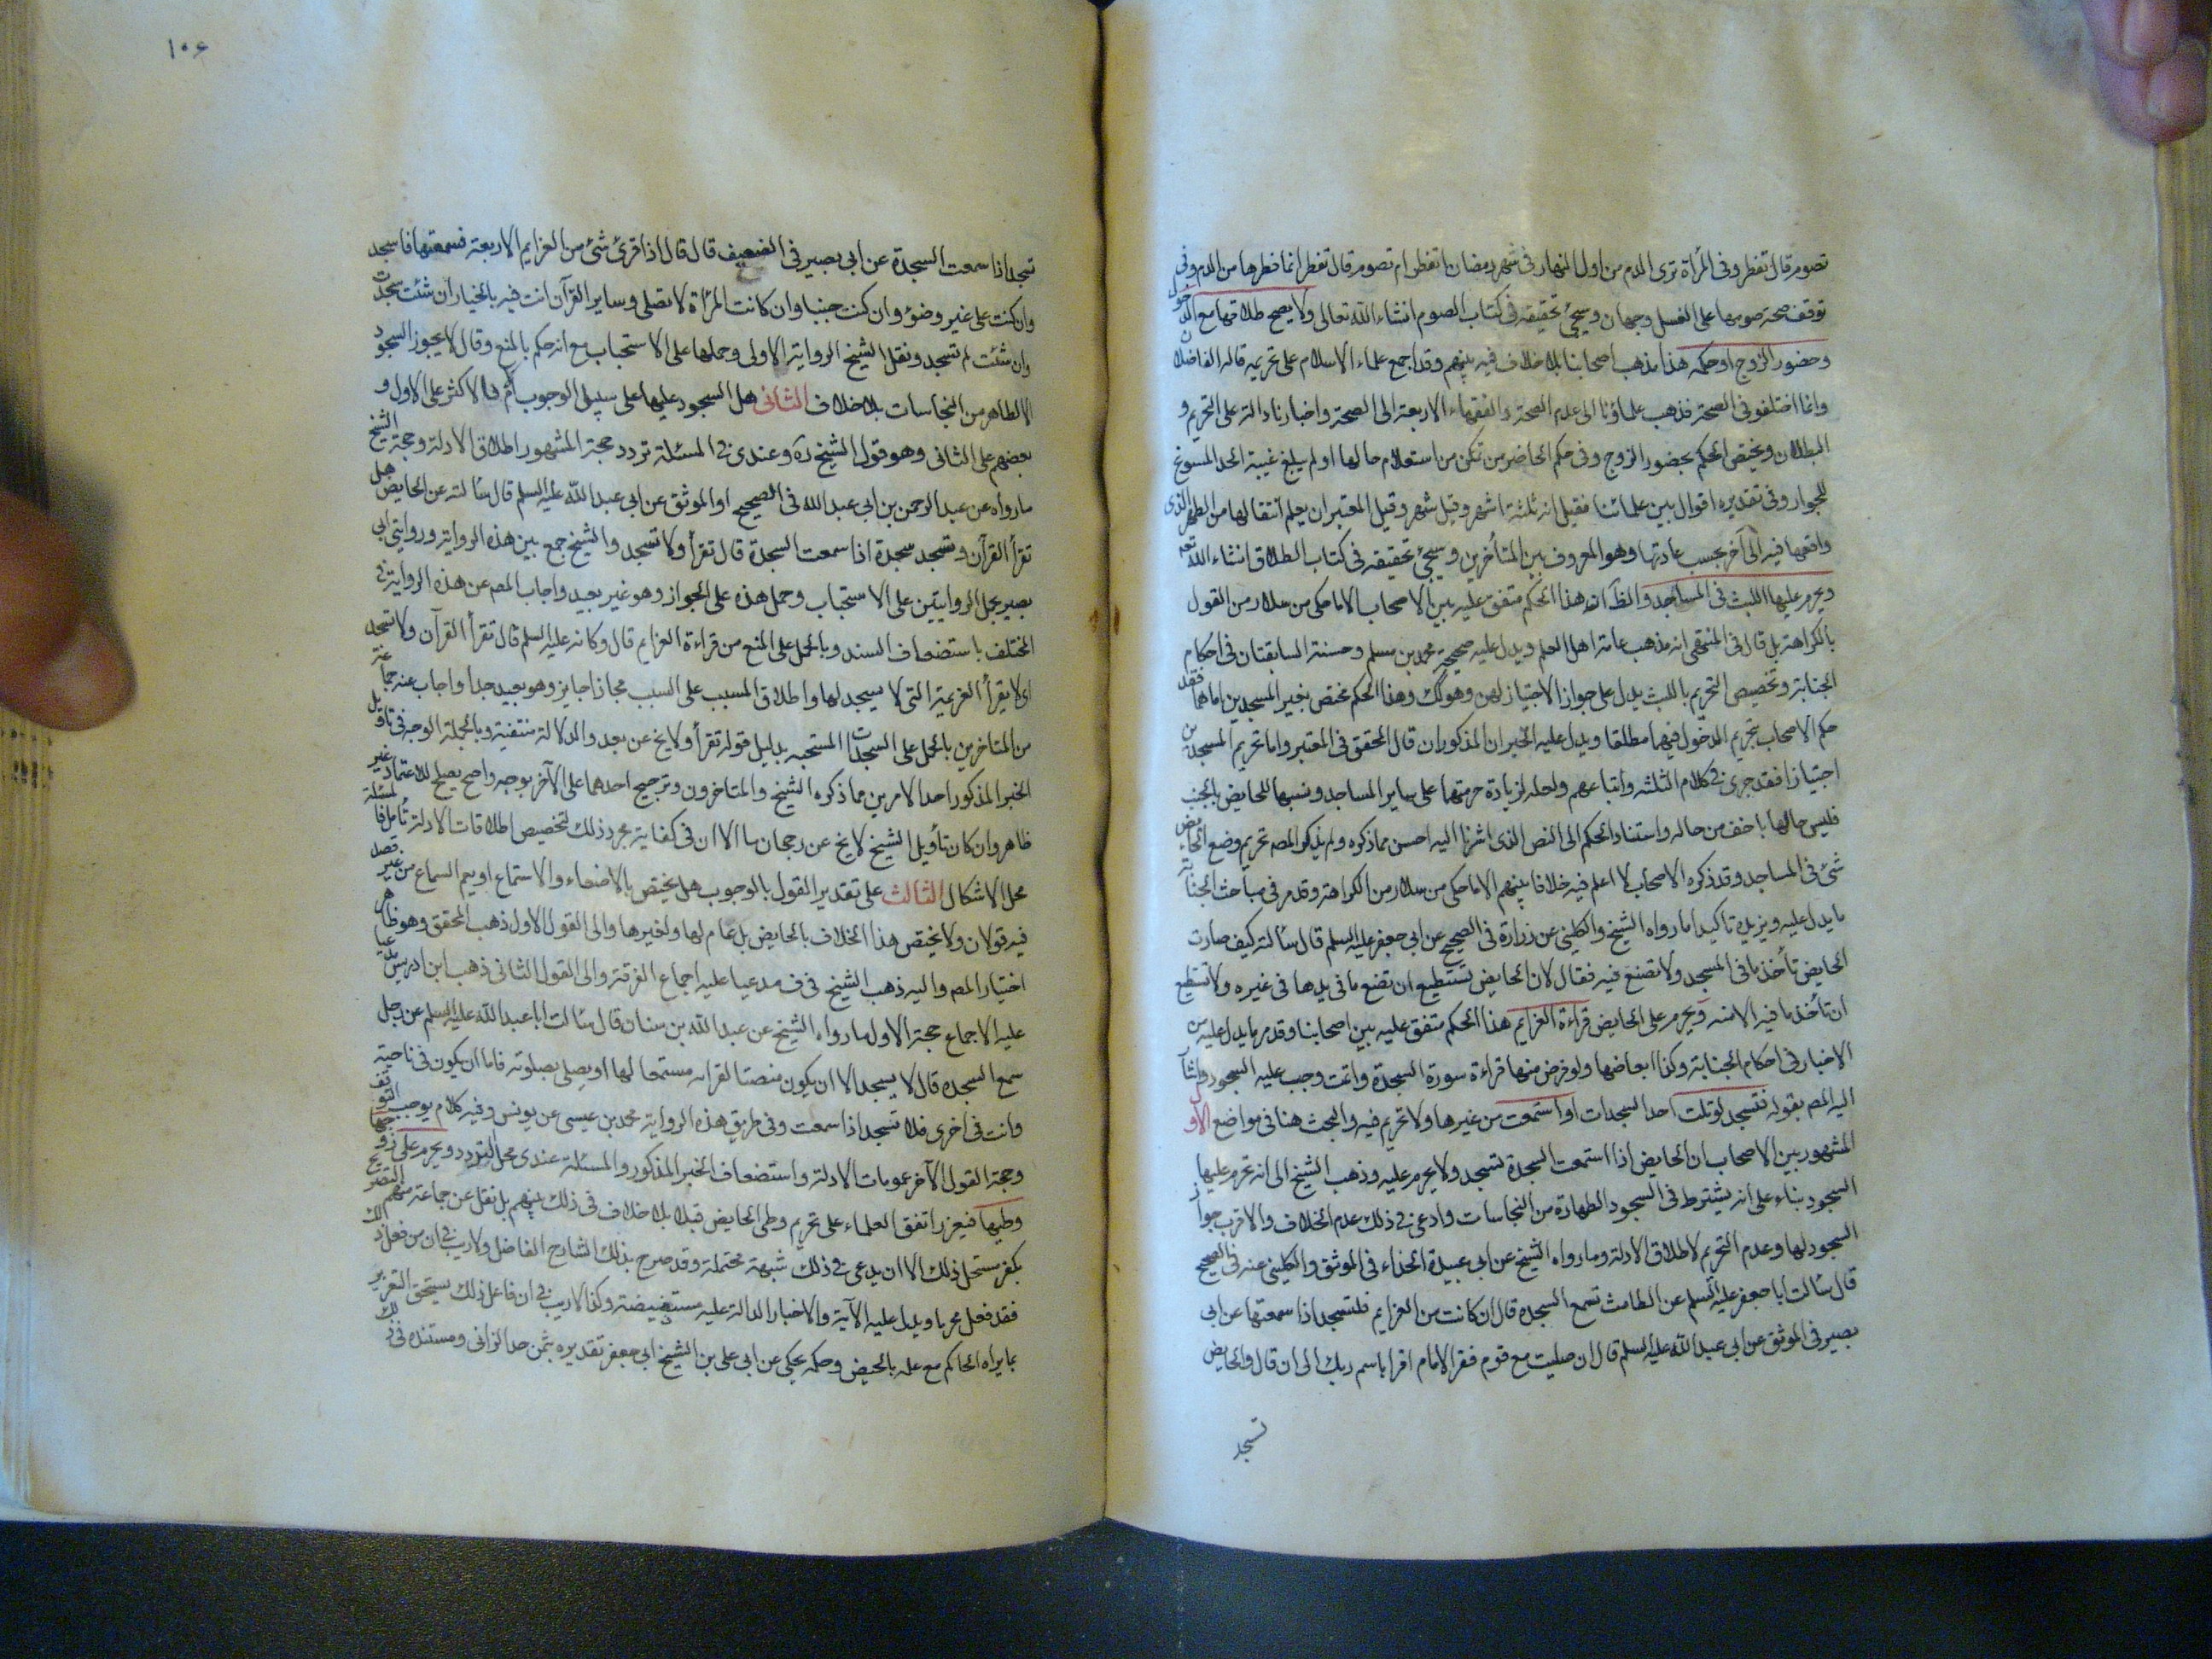 تصوم قال تفطر وفى المرأة ترى الدم من اول النهار فى شهر رمضان اتفطر ام تصوم قال تفطر انما فطرها من الدم وفى
توقف صحة صومها على الغسل وجهان وسيجئ تحقيقه فى كتاب الصوم انشاء الله تعالى ولا يصح طلاقها مع الدخول
وحضور الزوج او حكمه هذا مذهب اصحابنا بلا خلاف فيه بينهم وقد اجمع علماء الاسلام على تحريمه قاله الفاضلان
وانما اختلفوا فى الصحة فذهب علماؤنا الى عدم الصحة والفقهاء الاربعة الى الصحة واخبارنا دالة على التحريم و
البطلان ويختص الحكم بحضور الزوج وفى حكم الحاضر من تمكن من استعلام حالها او لم يبلغ غيبة الحد المسوغ
للجواز وفى تقديره اقوال بين علمائنا فقيل انه ثلثة اشهر وقيل شهر وقيل المعتبر ان يعلم انتقالها من الطهر الذى
واقعها فيه الى آخر بحسب عادتها وهو المعروف بين المتأخرين وسيجئ تحقيقه فى كتاب الطلاق انشاء الله تعم
ويحرم عليها اللبث فى المساجد والظ انه هذا الحكم متفق عليه بين الاصحاب الا ما حكى من سلار من القول
بالكراهة بل قال فى المنتهى انه مذهب عامة اهل العلم ويدل عليه صحيحة محمد بن مسلم وحسنته السابقتان فى احكام
الجنابة وتخصيص التحريم باللبث يدل على جواز الاجتياز لهن وهو كك وهذا الحكم مختص بغير المسجدين اما هما فقد
حكم الاصحاب بتحريم الدخول فيهما مطلقا ويدل عليه الخبران المذكوران قال المحقق فى المعتبر واما تحريم المسجدين
اجتيازا فقد جرى فى كلام الثلثة واتباعهم ولعله لزيادة حرمتهما على ساير المساجد وشبهها للحايض بالجنب
فليس حالها باخف من حاله واستناد الحكم الى النص الذى اشرنا اليه احسن مما ذكره ولم يذكر المصه تحريم وضع الحايض
شئ فى المساجد وقد ذكره الاصحاب لا اعلم فيه خلافا بينهم الا ما حكى من سلار من الكراهة وقد مر فى مباحث الجنابة
ما يدل عليه ويزيده تاكيدا ما رواه الشيخ والكلينى عن زرارة فى الصحيح عن ابى جعفر عليه السلم قال سألته كيف صارت
الحايض تأخذ ما فى المسجد ولا تضع فيه فقال لان الحايض تستطيع ان تضع ما فى يدها فى غيره ولا تستطيع
ان تأخذ ما فيه الا منه ويحرم على الحايض قراءة العزايم هذا الحكم متفق عليه بين اصحابنا وقد مر ما يدل عليه من
الاخبار فى احكام الجنابة وكذا ابعاضها ولو فرض منها قراءة سورة السجدة واتمت وجب عليه السجود واشار
اليه المصه بقوله فتسجد لو تلت احد السجدات او استمعت من غيرها ولا تحريم فيه والبحث هنا فى مواضع الاول
المشهور بين الاصحاب ان الحايض اذا استمعت السجدة تسجد ولا يحرم عليه وذهب الشيخ الى انه تحرم عليها
السجود بناء على انه يشترط فى السجود الطهارة من النجاسات وادعى فى ذلك عدم الخلاف والاقرب جواز
السجود لها وعدم التحريم لاطلاق الادلة وما رواه الشيخ عن ابى عبيدة الحذاء فى الموثق والكلينى عنه فى الصحيح
قال سألت ابا جعفر عليه السلم عن الطامث تسمع السجدة قال ان كانت من العزايم فلتسجد اذا سمعتها عن ابى
بصير فى الموثق عن ابى عبد الله عليه السلم قال ان صليت مع قوم فقرا الامام اقرا باسم ربك الى ان قال والحايض
تسجد
١٠۶
تسجد اذا سمعت السجدة عن ابى بصير فى الضعيف قال قال اذا قرئ شئ من العزايم الاربعة فسمعتها فاسجد
وان كنت على غير وضوء وان كنت جنبا وان كانت المرأة لا تصلى وساير القرآن انت فيه بالخيار ان شئت سجدت
وان شئت لم تسجد ونقل الشيخ الرواية الاولى وحملها على الاستحباب مع انه حكم بالمنع وقال لا يجوز السجود
الا لطاهر من النجاسات بلا خلاف الثانى هل السجود عليها على سبيل الوجوب ام لا فالاكثر على الاول و
بعضهم على الثانى وهو قول الشيخ ره وعندى فى المسئلة تردد حجة المشهور اطلاق الادلة وحجة الشيخ
ما رواه عن عبد الرحمن بن ابى عبد الله فى الصحيح او الموثق عن ابى عبد الله عليه السلم قال سألته عن الحايض هل
تقرأ القرآن وتسجد سجدة اذا سمعت السجدة قال تقرأ ولا تسجد والشيخ جمع بين هذه الرواية وروايتى ابى
بصير بحمل الروايتين على الاستحباب وحمل هذه على الجواز وهو غير بعيد واجاب المصه عن هذه الرواية فى
المختلف باستضعاف السند وبالحمل على المنع من قراءة العزايم قال وكانه عليه السلم قال تقرأ القرآن ولا تسجد
اى لا يقرأ العزيمة التى لا يسجد لها واطلاق المسبب على السبب مجازا جايز وهو بعيد جدا واجاب عنه جماعة
من المتاخرين بالحمل على السجدات المستحبه بدليل قوله تقرأ ولا يخ عن بعد والدلالة منتفية وبالجملة الوجه فى تاويل
الخبر المذكور احد الامرين مما ذكره الشيخ والمتاخرون وترجيح احدهما على الآخر بوجه واضح يصلح للاعتماد غير
ظاهر وان كان تأويل الشيخ لا يخ عن رجحان ما الا ان فى كفاية مجرد ذلك لتخصيص اطلاقات الادلة تأمل فالمسئلة
محل الاشكال الثالث على تقدير القول بالوجوب هل يختص بالاصغاء والاستماع او يعم السماع من غير قصد
فيه قولان ولا يختص هذا الخلاف بالحايض بل عام لها ولغيرها والى القول الاول ذهب المحقق وهو ظاهر
اختيار المصه واليه ذهب الشيخ فى ف مدعيا عليه اجماع الفرقة والى القول الثانى ذهب ابن ادريس مدعيا
عليه الاجماع حجة الاول ما رواه الشيخ عن عبد الله بن سنان قال سألت ابا عبد الله عليه السلم عن رجل
سمع السجدة قال لا يسجد الا ان يكون منصتا لقراته مستمعا لها او يصلى بصلوته فاما ان يكون فى ناحية
وانت فى اخرى فلا تسجد اذا سمعت وفى طريق هذه الرواية محمد بن عيسى عن يونس وفيه كلام يوجب التوقف
وحجة القول الآخر عمومات الادلة واستضعاف الخبر المذكور والمسئلة عندى محل التردد ويحرم على زوجها
وطيها فيعزر اتفق العلماء على تحريم وطى الحايض قبلا بلا خلاف فى ذلك بينهم بل نقل عن جماعة منهم التصريح
بكفر مستحل ذلك الا ان يدعى فى ذلك شبهة محتملة وقد صرح بذلك الشارح الفاضل ولا ريب فى ان من فعل ذلك
فقد فعل محرما ويدل عليه الآية والاخبار الدالة عليه مستفيضة وكذا لا ريب فى ان فاعل ذلك يستحق التعزير
بما يراه الحاكم مع علمه بالحيض وحكمه يحكى عن ابى على بن الشيخ ابى جعفر تقديره بثمن حد الزانى ومستنده فى ذلك